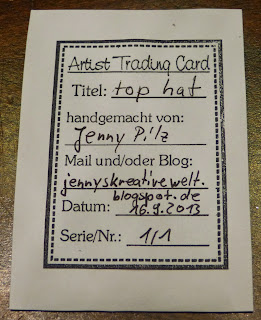 Artist Trading Card
Titel: top hat
handgemacht von:
Jenny Pilz
Mail und/oder Blog:
jennyskreativewelt.
blogspot.de
Datum: 16.9.2013
Serie/Nr.: 1/1